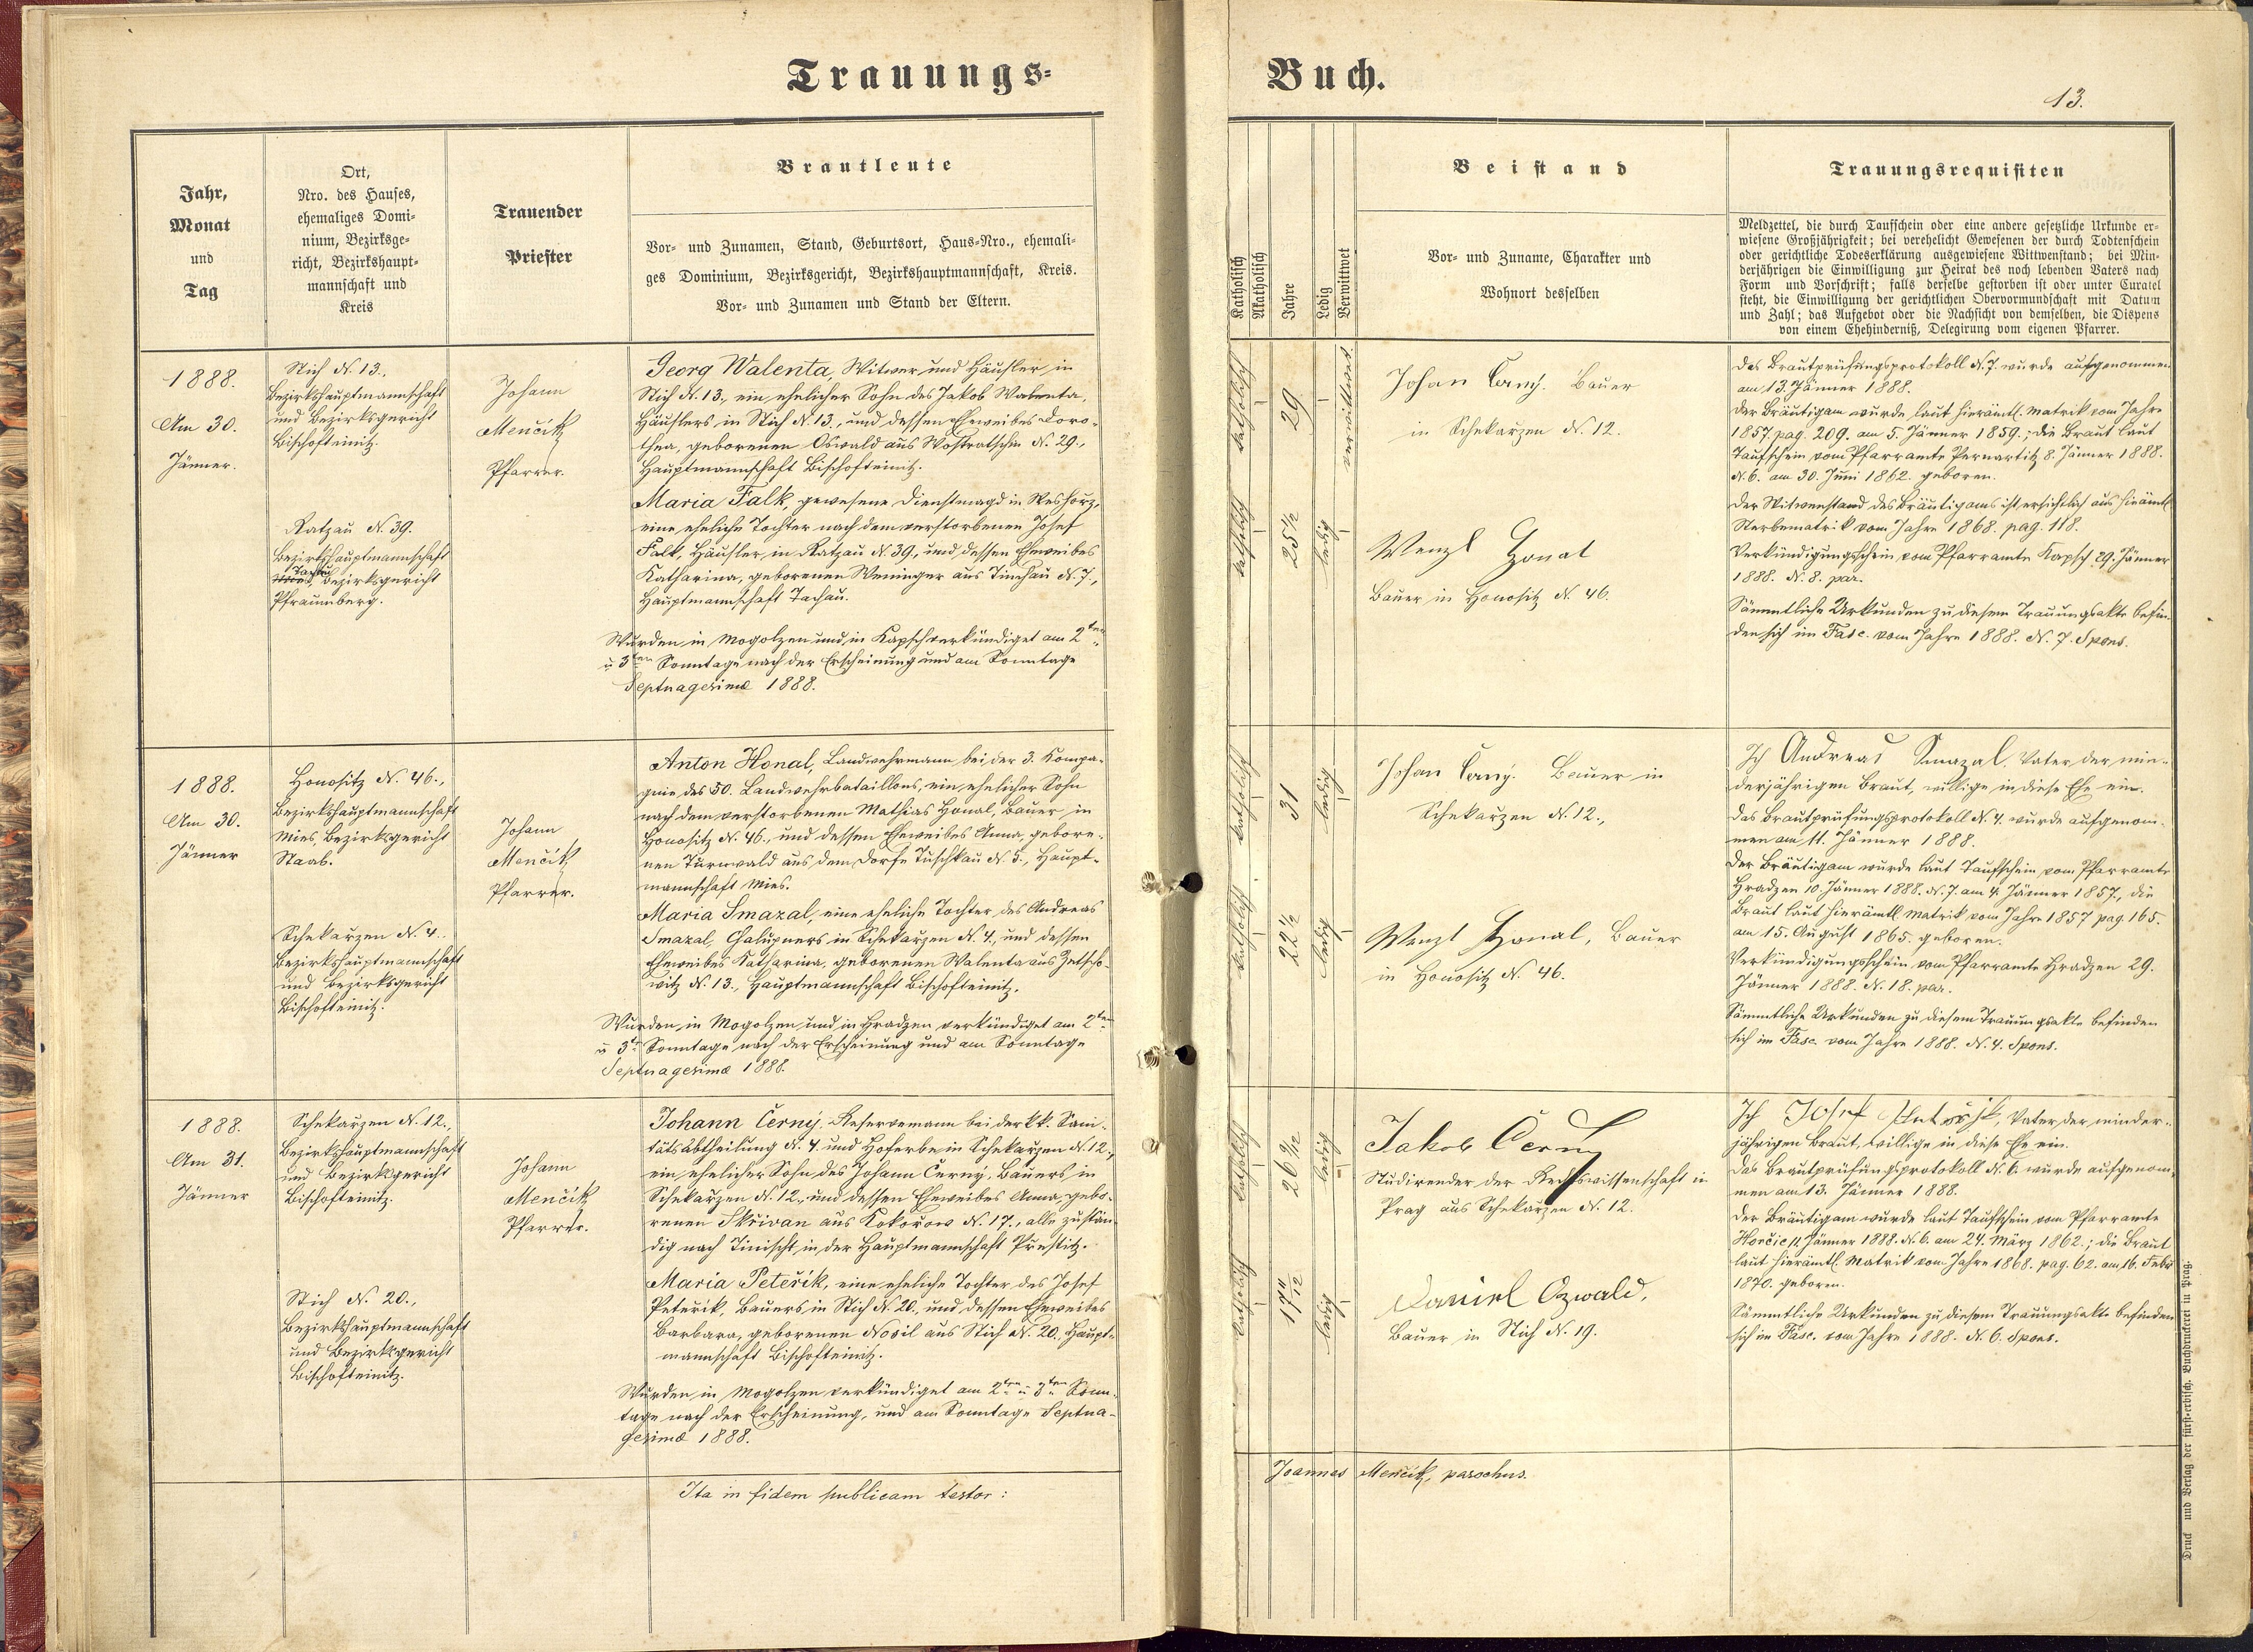 Trauungs-
Buch.
13.
Jahr,
Monat
und
Tag
Ort,
Nro. des Hauses,
ehemaliges Domi-
nium, Bezirksge-
richt, Bezirkshaupt-
mannschaft und
Kreis
Trauender
Priester
Brautleute
Vor- und Zunamen, Stand, Geburtsort, Haus-Nro., ehemali-
ges Dominium, Bezirksgericht, Bezirkshauptmannschaft, Kreis.
Vor- und Zunamen und Stand der Eltern.
Katholisch
Akatholisch
Jahre
Ledig
Verwittwet
Beistand
Vor- und Zuname, Charakter und
Wohnort desselben
Trauungsrequisiten
Meldzettel, die durch Taufschein oder eine andere gesetzliche Urkunde er-
wiesene Großjährigkeit; bei verehelicht Gewesenen der durch Todtenschein
oder gerichtliche Todeserklärung ausgewiesene Wittwenstand; bei Min-
derjährigen die Einwilligung zur Heirat des noch lebenden Vaters nach
Form und Vorschrift; falls derselbe gestorben ist oder unter Curatel
steht, die Einwilligung der gerichtlichen Obervormundschaft mit Datum
und Zahl; das Aufgebot oder die Nachsicht von demselben, die Dispens
von einem Ehehinderniß, Delegirung vom eigenen Pfarrer.
1888.
Am 30.
Jänner.
Stich N. 13.,
Bezirkshauptmannschaft
und Bezirksgericht
Bischofteinitz.
Ratzau N. 39.
Bezirkshauptmannschaft
Tachau
Bezirksgericht
Pfraumberg.
Johann
Menčik
Pfarrer.
Georg Walenta, Witwer und Häusler in
Stich N. 13., ein ehelicher Sohn des Jakob Walenta,
Häuslers in Stich N. 13., und dessen Eheweibes Doro-
thea, geborenen Oswald aus Wostratschin N. 29.,
Hauptmannschaft Bischofteinitz.
Maria Falk, gewesene Dienstmagd in
eine eheliche Tochter nach dem verstorbenen Josef
Falk, Häusler in Ratzau N. 39., und dessen Eheweibes
Katharina, geborenen Weninger aus Tinchau N. 7.,
Hauptmannschaft Tachau.
Wurden in Mogolzen und in Kapsch verkündiget am 2ten
u 3ten Sonntage nach der Erscheinung und am Sonntage
Septuagesimæ 1888.
katholisch
29
verwittwet
katholisch
25½
ledig
Johan Černy. Bauer
in Schekarzen N. 12.
Wenzl Honal
Bauer in Honositz N. 46.
Das Brautprüfungsprotokoll N. 7. wurde aufgenommen
am 13. Jänner 1888.
Der Bräutigam wurde laut hierämtl. Matrik vom Jahre
1857. pag. 209. am 5. Jänner 1859.; die Braut laut
Taufschein vom Pfarramte Pernartitz 8. Jänner 1888.
N. 6. am 30. Juni 1862. geboren.
Der Witwenstand des Bräutigams ist ersichtlich aus hierämtl
Sterbematrik vom Jahre 1868. pag. 118.
Verkündigungsschein vom Pfarramte Kapsch 29. Jänner
1888. N. 8. par.
Sämmtliche Urkunden zu diesem Trauungsakte befin-
den sich im Fasc. vom Jahre 1888. N. 7. Spons.
1888.
Am 30.
Jänner
Honositz N. 46.,
Bezirkshauptmannschaft
Mies, Bezirksgericht
Staab.
Schekarzen N. 4.
Bezirkshauptmannschaft
und Bezirksgericht
Bischofteinitz.
Johann
Menčik
Pfarrer.
Anton Honal, Landwehrmann bei der 3. Kompa-
gnie des 50. Landwehrbataillons, ein ehelicher Sohn
nach dem verstorbenen Mathias Honal, Bauer in
Honositz N. 46., und dessen Eheweibes Anna, gebore-
nen Turnwald aus dem Dorfe Tuschkau N. 5., Haupt-
mannschaft Mies.
Maria Smazal, eine eheliche Tochter des Andreas
Smazal, Chalupners in Schekarzen N. 4., und dessen
Eheweibes Katharina, geborenen Walenta aus Zetscho-
witz N. 13., Hauptmannschaft Bischofteinitz.
Wurden in Mogolzen und in Hradzen verkündiget am 2ten
u 3ten Sonntage nach der Erscheinung und am Sonntage
Septuagesimæ 1888.
katholisch
31
ledig
katholisch
22½
ledig
Johan Černy. Bauer in
Schekarzen N. 12.,
Wenzl Honal, Bauer
in Honositz N. 46.
Ich Andreas Smazal, Vater der min-
derjährigen Braut, willige in diese Ehe ein.
Das Brautprüfungsprotokoll N. 4. wurde aufgenom-
men am 11. Jänner 1888.
Der Bräutigam wurde laut Taufschein vom Pfarramte
Hradzen 10. Jänner 1888. N. 7. am 4. Jänner 1857., die
Braut laut hierämtl. Matrik vom Jahre 1857 pag. 165.
am 15. August 1865. geboren.
Verkündigungsschein vom Pfarramte Hradzen 29.
Jänner 1888. N. 18. par.
Sämmtliche Urkunden zu diesem Trauungsakte befinden
sich im Fasc. vom Jahre 1888. N. 4. Spons.
1888.
Am 31.
Jänner
Schekarzen N. 12.,
Bezirkshauptmannschaft
und Bezirksgericht
Bischofteinitz.
Stich N. 20.,
Bezirkshauptmannschaft
und Bezirksgericht
Bischofteinitz.
Johann
Menčik
Pfarrer.
Johann Černý, Reservemann bei der k.k. Sani-
tätsabtheilung N. 4 und Hoferbe in Schekarzen N. 12.,
ein ehelicher Sohn des Johann Černý, Bauers in
Schekarzen N. 12., und dessen Eheweibes Anna, gebo-
renen Skřivan aus Kokořow N. 17., alle zustän-
dig nach Tinischt, in der Hauptmannschaft Přestitz.
Maria Peteřik, eine eheliche Tochter des Josef
Peteřik, Bauers in Stich N. 20., und dessen Eheweibes
Barbara, geborenen Nosil aus Stich N. 20., Haupt-
mannschaft Bischofteinitz.
Wurden in Mogolzen verkündiget am 2ten u 3ten Sonn-
tage nach der Erscheinung, und am Sonntage Septua-
gesimæ 1888.
katholisch
ledig
katholisch
17 11/12
ledig
Jakob Černy
Studirender der Rechtswissenschaft in
Prag aus Schekarzen N. 12.
Daniel Ozwald,
Bauer in Stich N. 19.
Ich Josef Peteržik, Vater der minder-
jährigen Braut, willige in diese Ehe ein.
Das Brautprüfungsprotokoll N. 6. wurde aufgenom-
men am 13. Jänner 1888.
Der Bräutigam wurde laut Taufschein vom Pfarramte
Horčic 11 Jänner 1888. N. 6. am 24. März 1862.; die Braut
laut hierämtl. Matrik vom Jahre 1868. pag. 62. am 16. Febr
1870. geboren.
Sämmtliche Urkunden zu diesem Trauungsakte befinden
sich im Fasc. vom Jahre 1888. N. 6. Spons.
Ita in fidem publicam testor:
Joannes Menčik, parochus.
Druck und Verlag der fürst-erzbisch. Buchdruckerei in Prag.